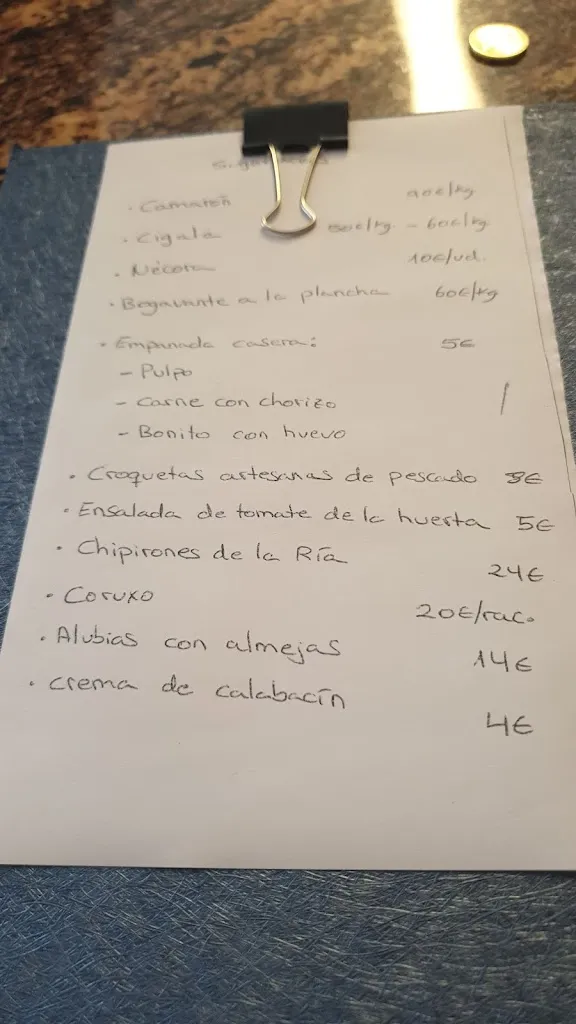 · Camarón 90€/kg
· Cigala 50€/kg. - 60€/kg.
· Nécora 10€/ud.
· Bogavante a la plancha 60€/kg
· Empanada casera: 5€
- Pulpo
- Carne con chorizo
- Bonito con huevo
· Croquetas artesanas de pescado
· Ensalada de tomate de la huerta 5€
· Chipirones de la Ría 24€
· Coruxo 20€/rac.
· Alubias con almejas 14€
· Crema de calabacín 4€